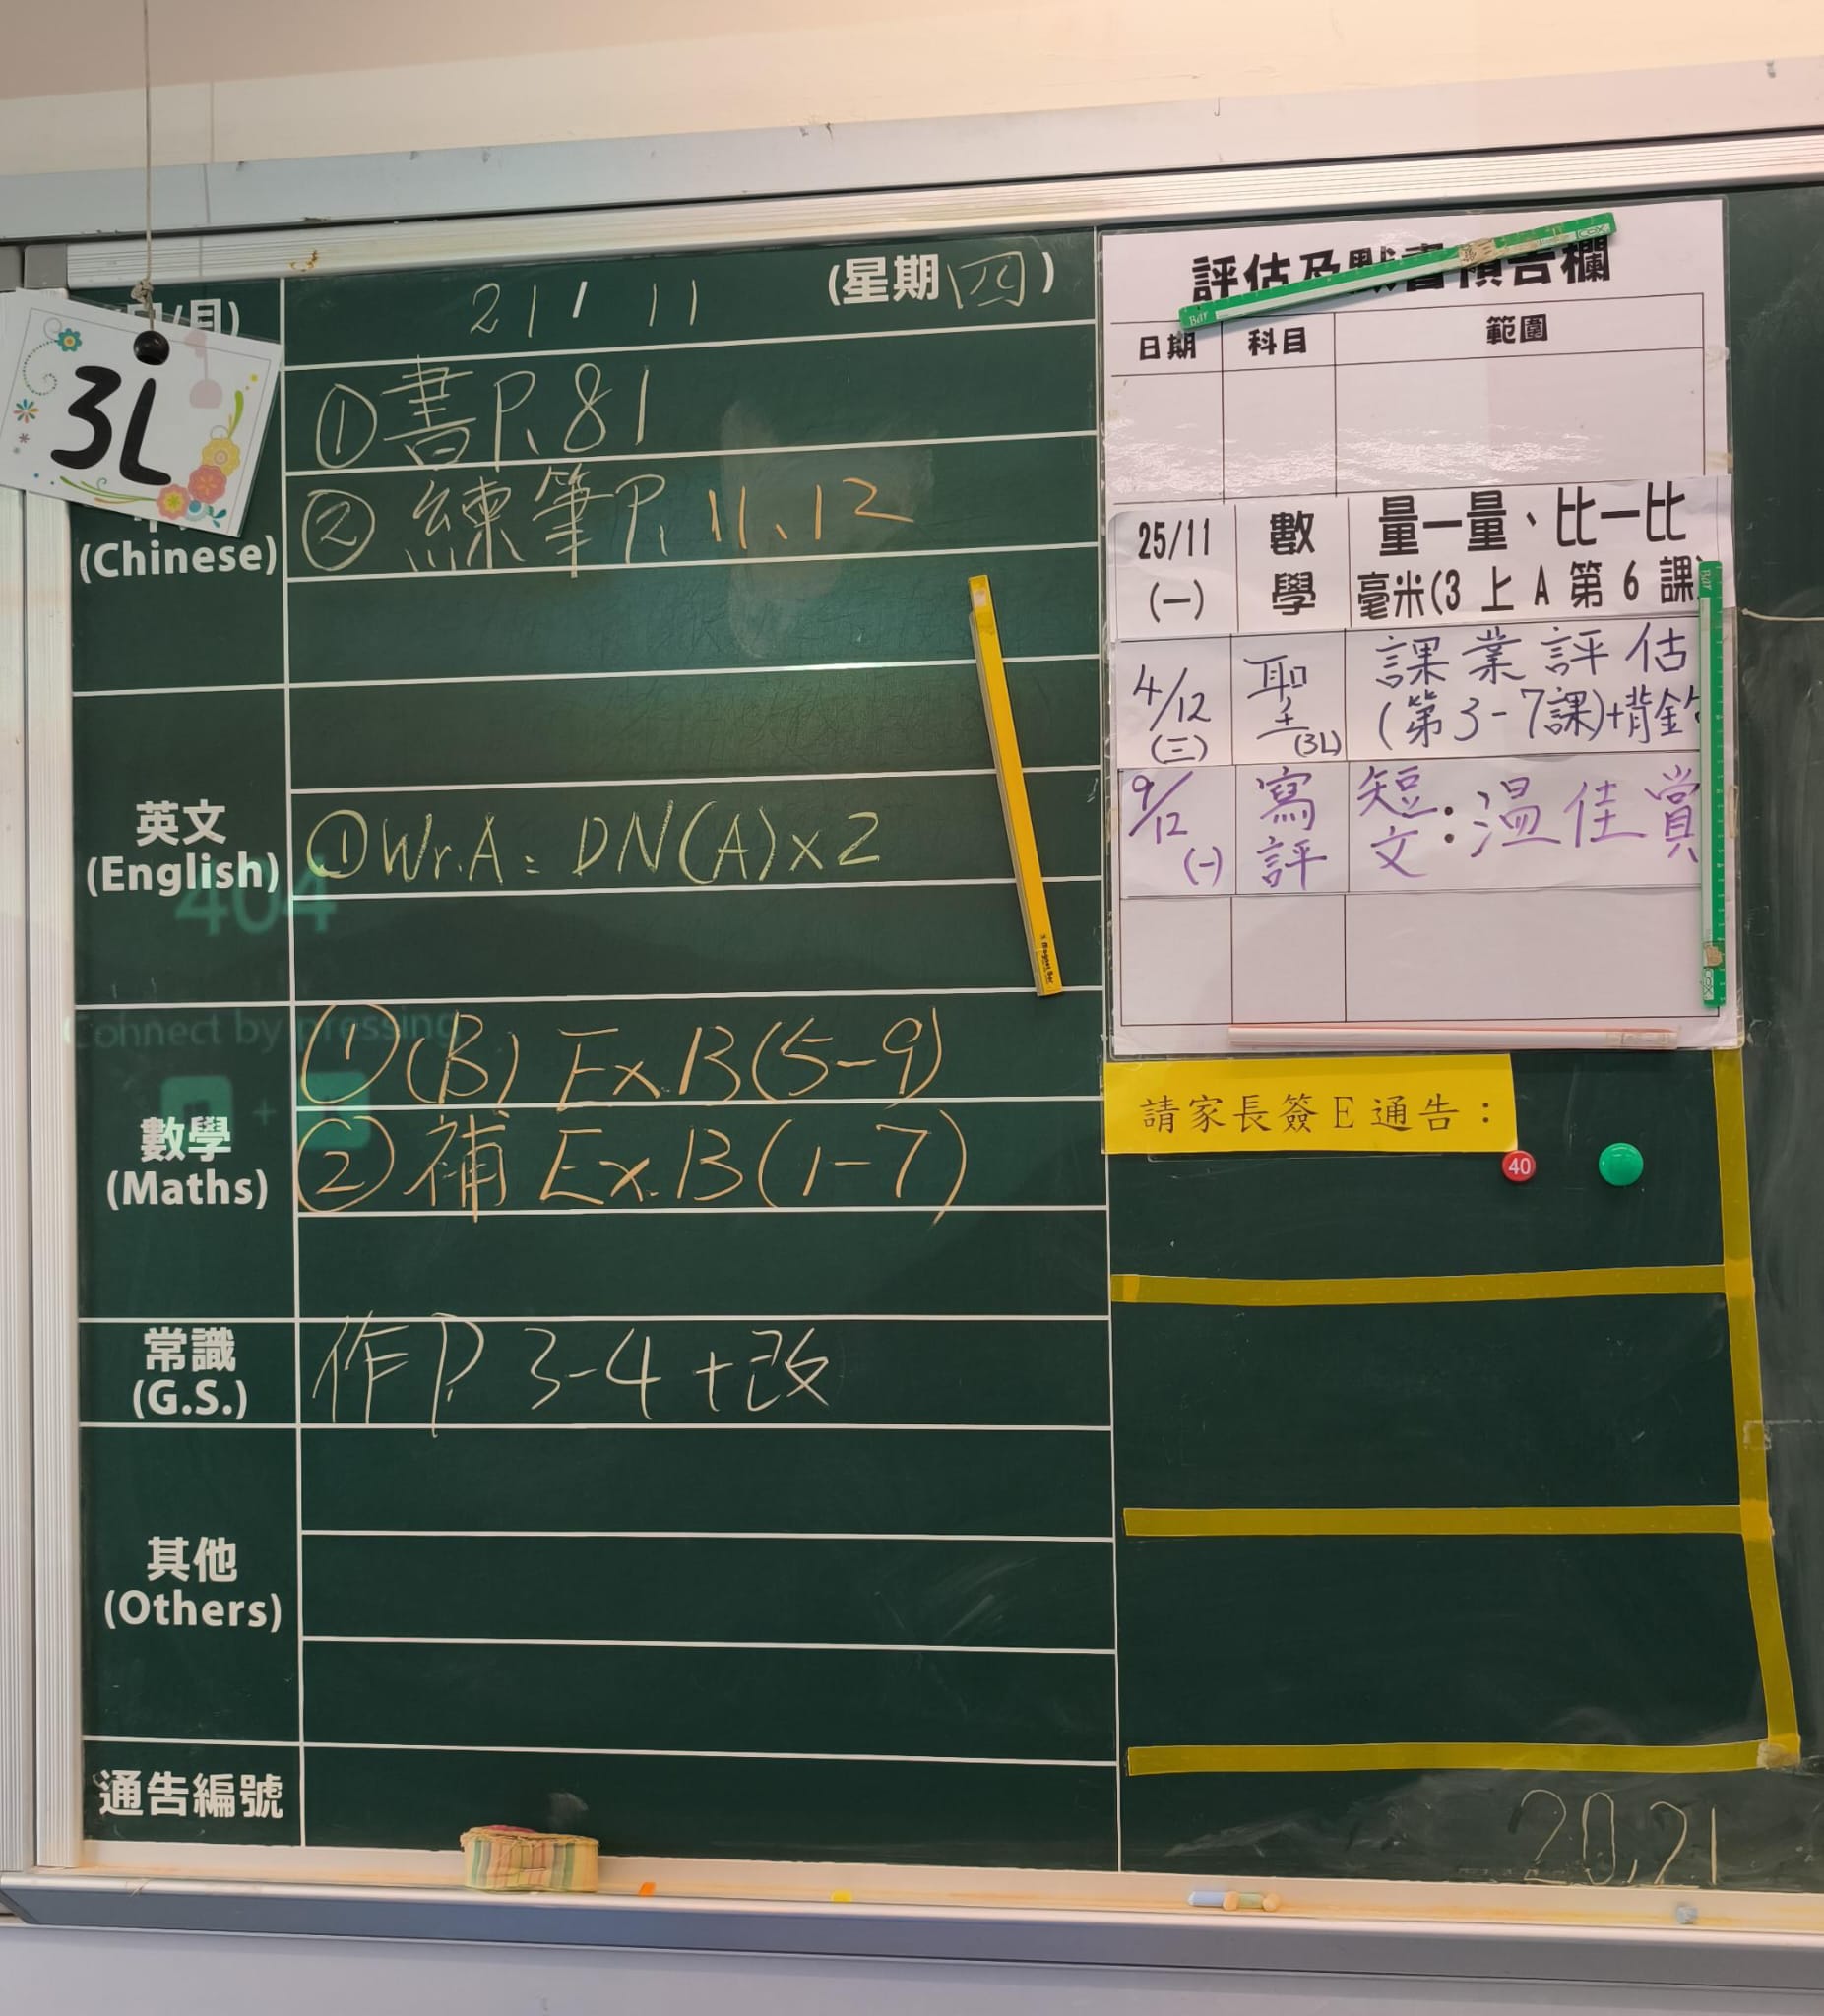 21 / 11 (星期四)
3L
(Chinese)
①書P.81
②練筆P.11、12
英文
(English)
①Wr.A: DN(A)×2
404
Connect by pressing
+
數學
(Maths)
①(B) Ex.B(5-9)
②補 Ex.B(1-7)
常識
(G.S.)
作P.3-4+改
其他
(Others)
通告編號
評估及默書預告欄
日期 科目 範圍
25/11 (一) 數學 量一量、比一比
毫米(3 上 A 第 6 課
4/12 (三) 聖 (3L) 課業評估
(第3-7課)+背金
9/12 (一) 寫評 短文:温佳賞
請家長簽E通告:
40
20,21